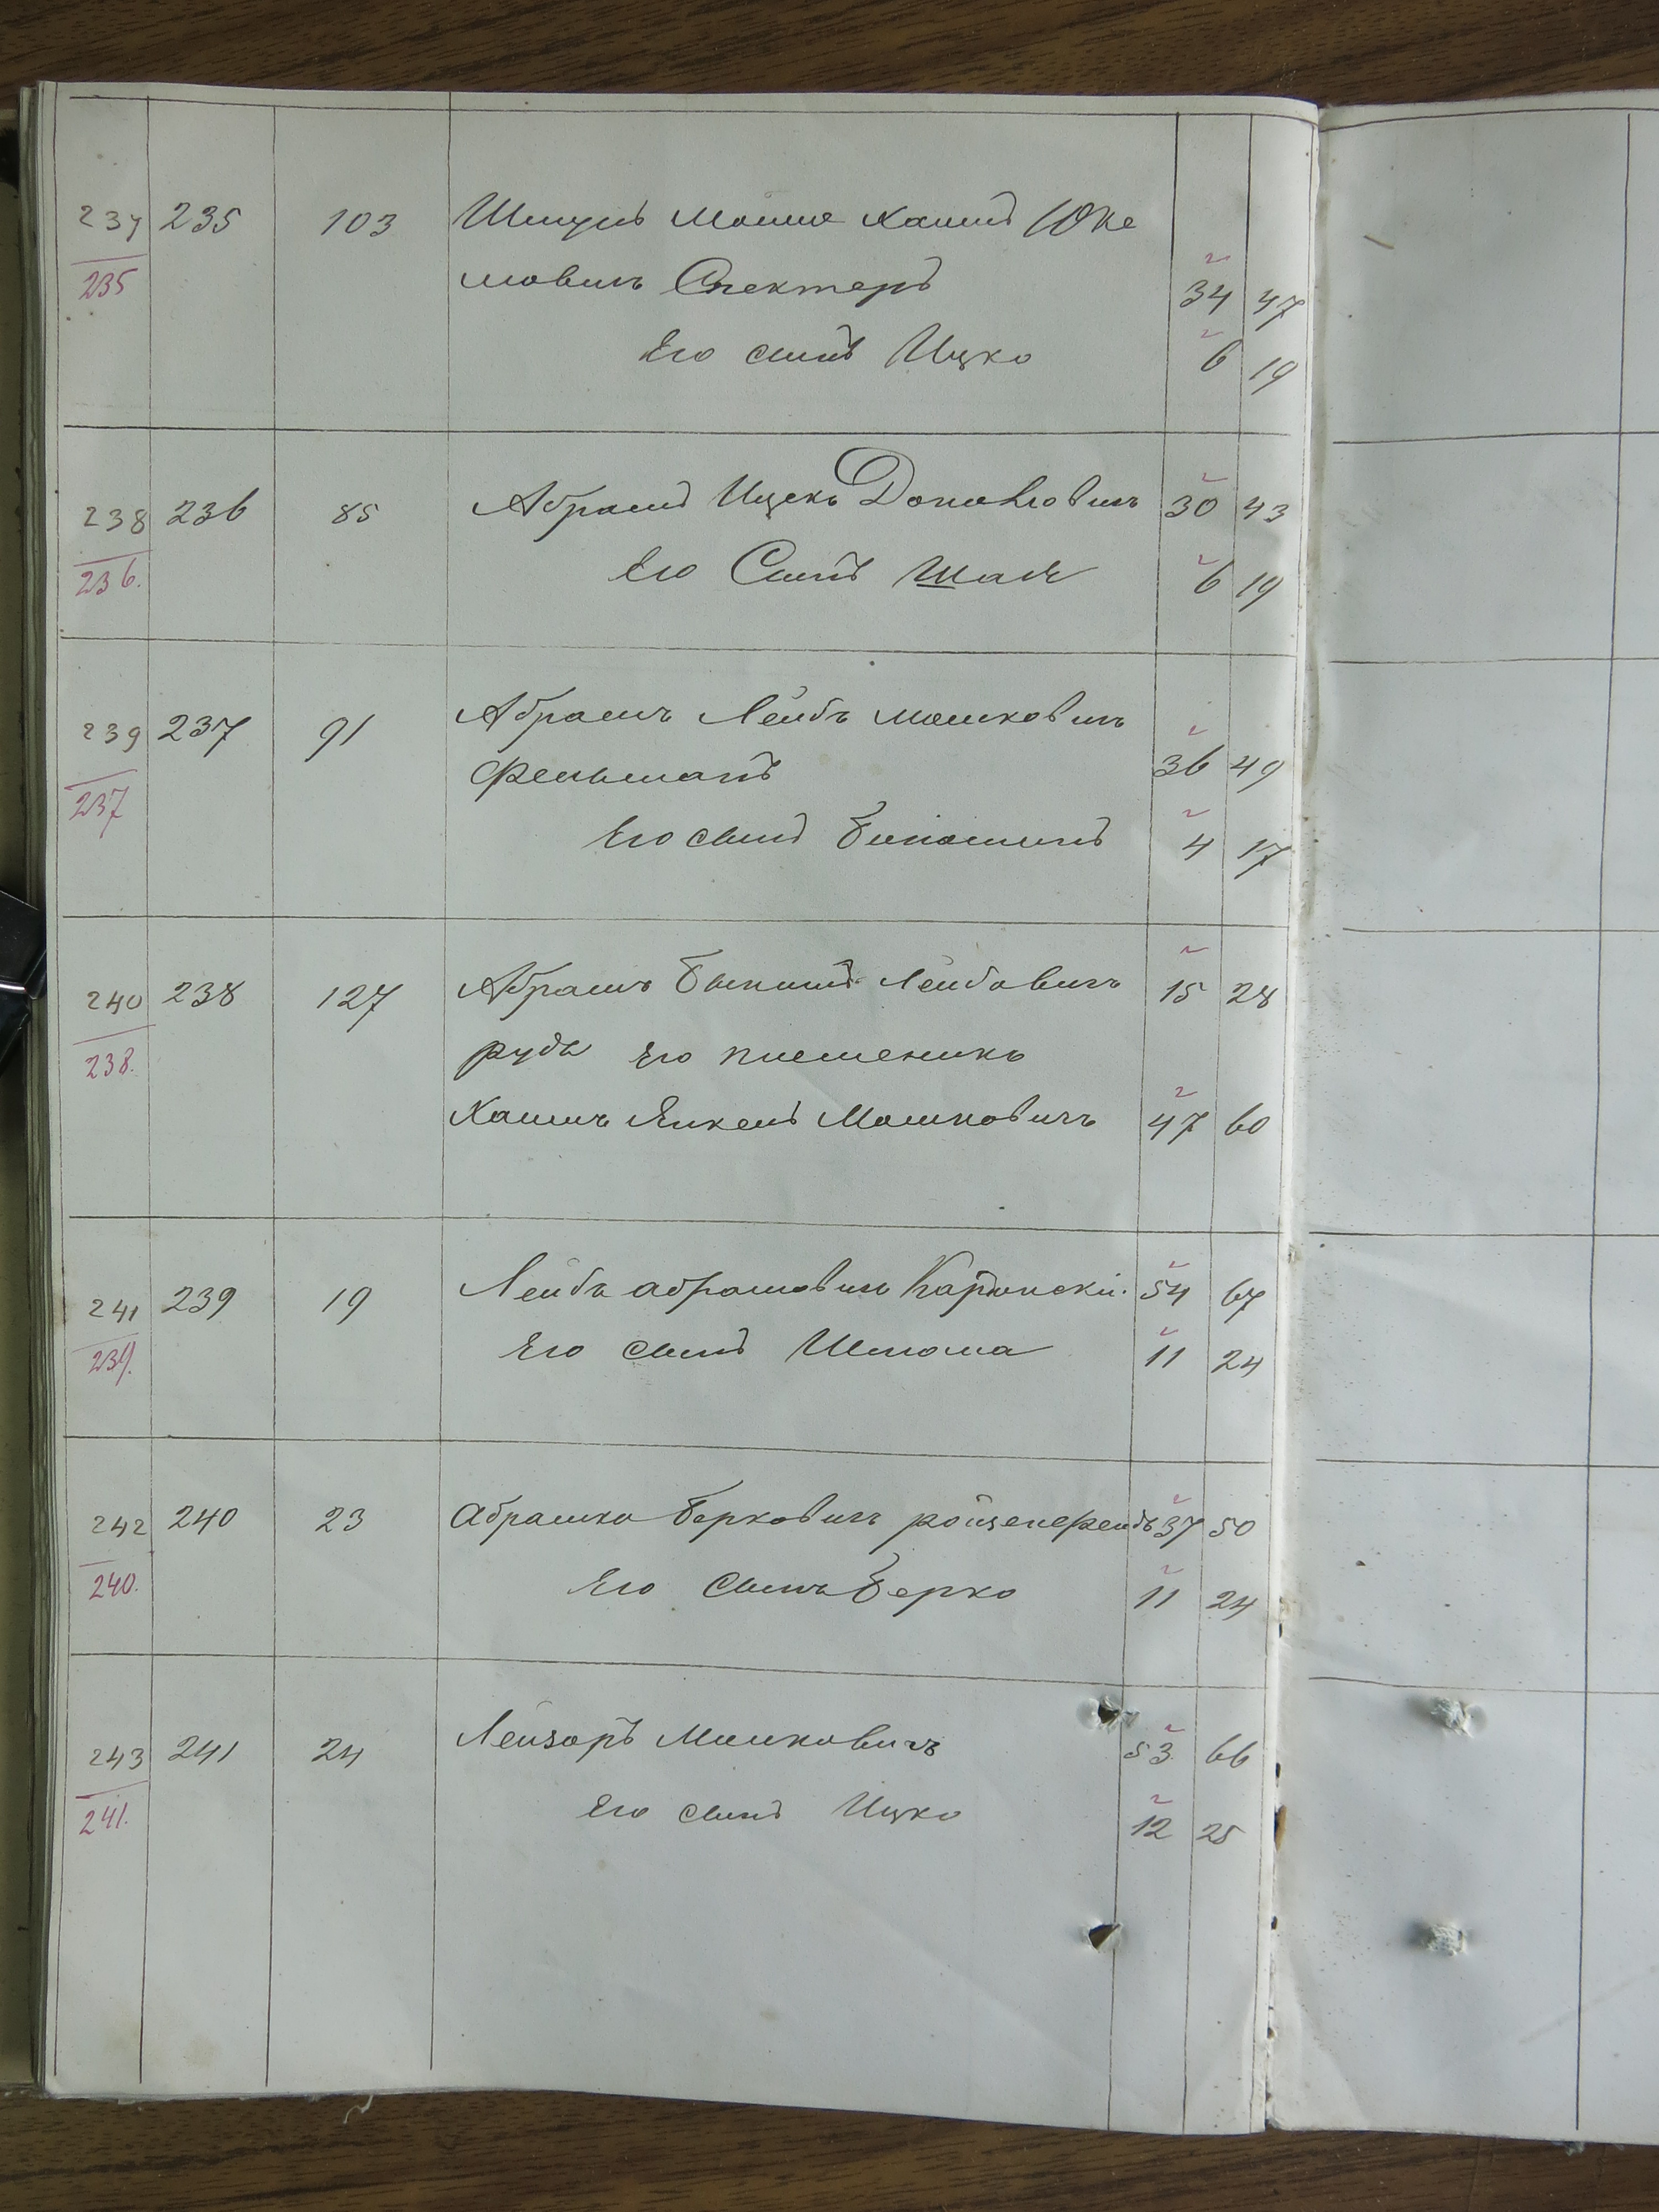 237 235 103 Шмуль Мошко Хаимъ Юке
235 мовичъ Спекторъ 34 47
Его сынъ Ицко 6 19
238 236 85 Абрамъ Ицекъ 30 43
236. Его Сынъ Шая 6 19
239 237 91 Абрамъ Лейбъ Мошковичъ
Фельманъ 36 49
237
Его сынъ Биніоминъ 4 17
240 238 127 Абрамъ Лейбовичъ 15 28
238. Руда Его племеникъ
Хаимъ Янкель Мошковичъ 47 60
241 239 19 Лейба Абрамовичъ 54 67
239. Его сынъ Шлома 11 24
242 240 23 Абрамко Берковичъ 37 50
240. Его Сынъ Берко 11 24
243 241 24 Лейзоръ Мошковичъ 53 66
241. Его сынъ Ицко 12 25